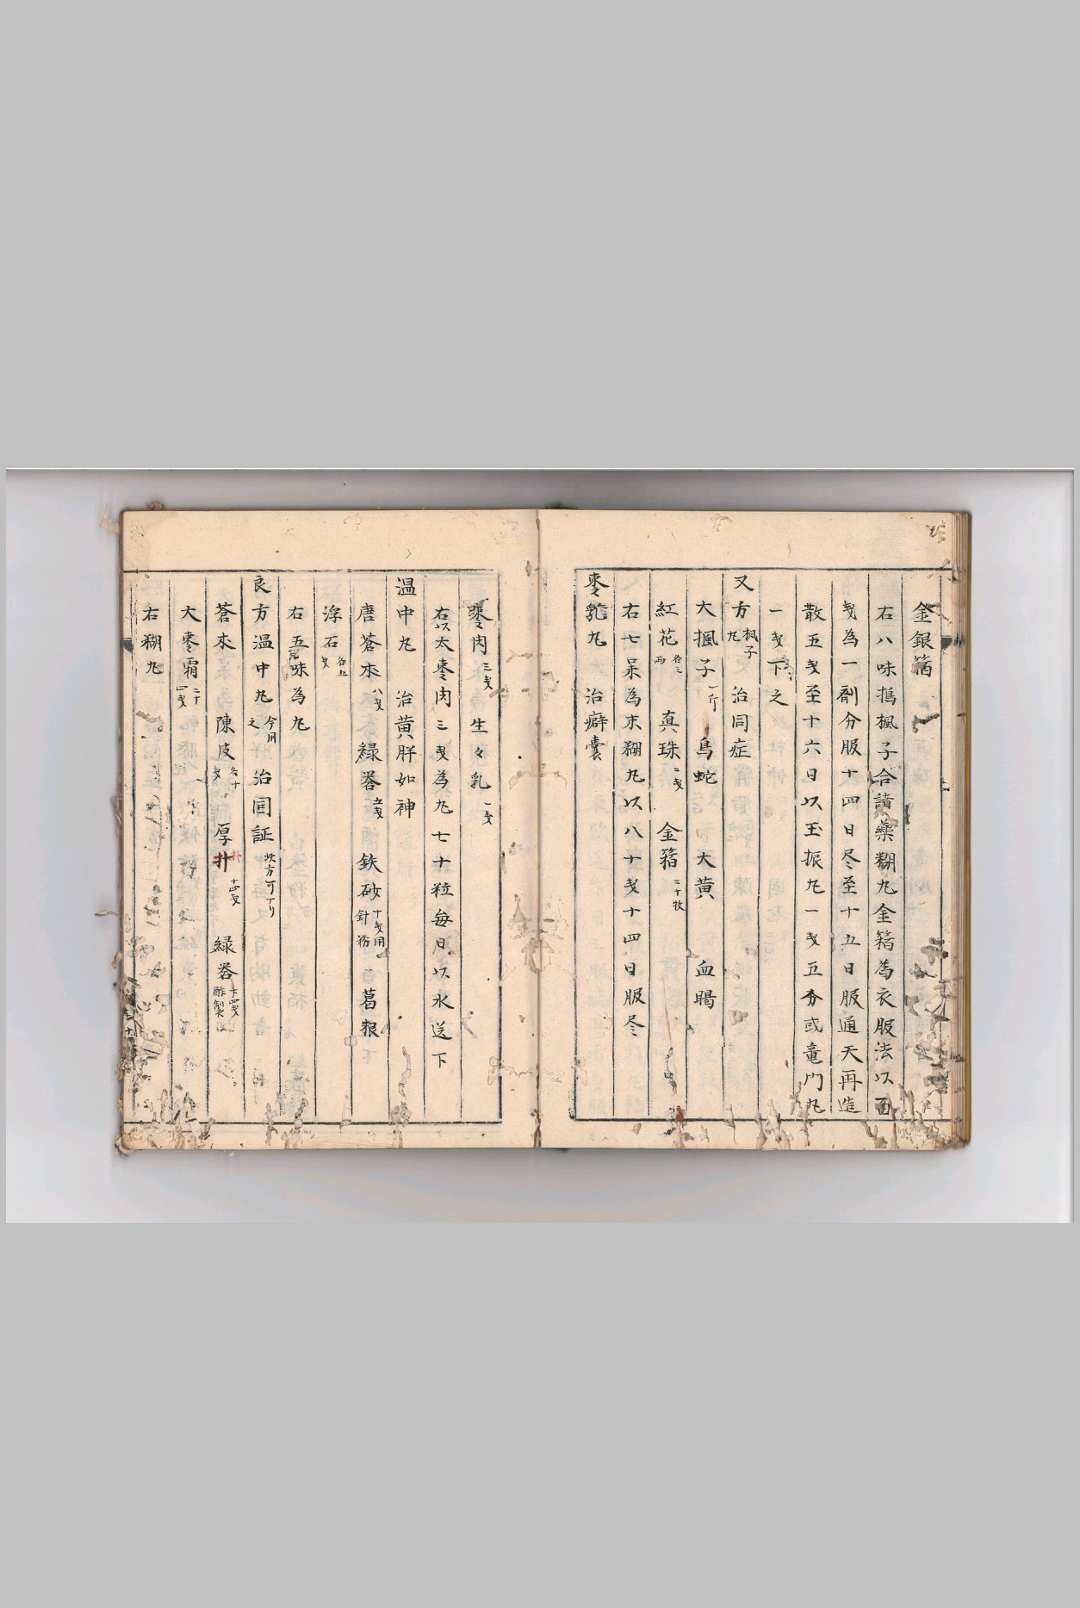 金銀箔
右八味搗楓子合諸藥糊丸金箔為衣服法以面
戔為一劑分服十四日尽至十五日服通天再造
散五戔至十六日以玉振丸一戔五分或竜門丸
一戔下之
又方楓子丸 治同症
大楓子一斤 烏蛇 大黄 血竭
紅花各三両 真珠二戔 金箔三十枚
右七味為末糊丸以八十戔十四日服尽
棗乳丸 治癖嚢
棗肉三戔 生々乳一戔
右以太棗肉三戔為丸七十粒毎日以水送下
温中丸 治黄肝如神
唐蒼朮八戔 緑礬五戔 鉄砂十戔用針 葛根
浮石各五戔
右五味為丸
良方温中丸今用之 治同証
蒼朮 陳皮各十戔 厚朴十四戔 緑礬十四戔酢製
大棗霜二十一戔
右糊丸